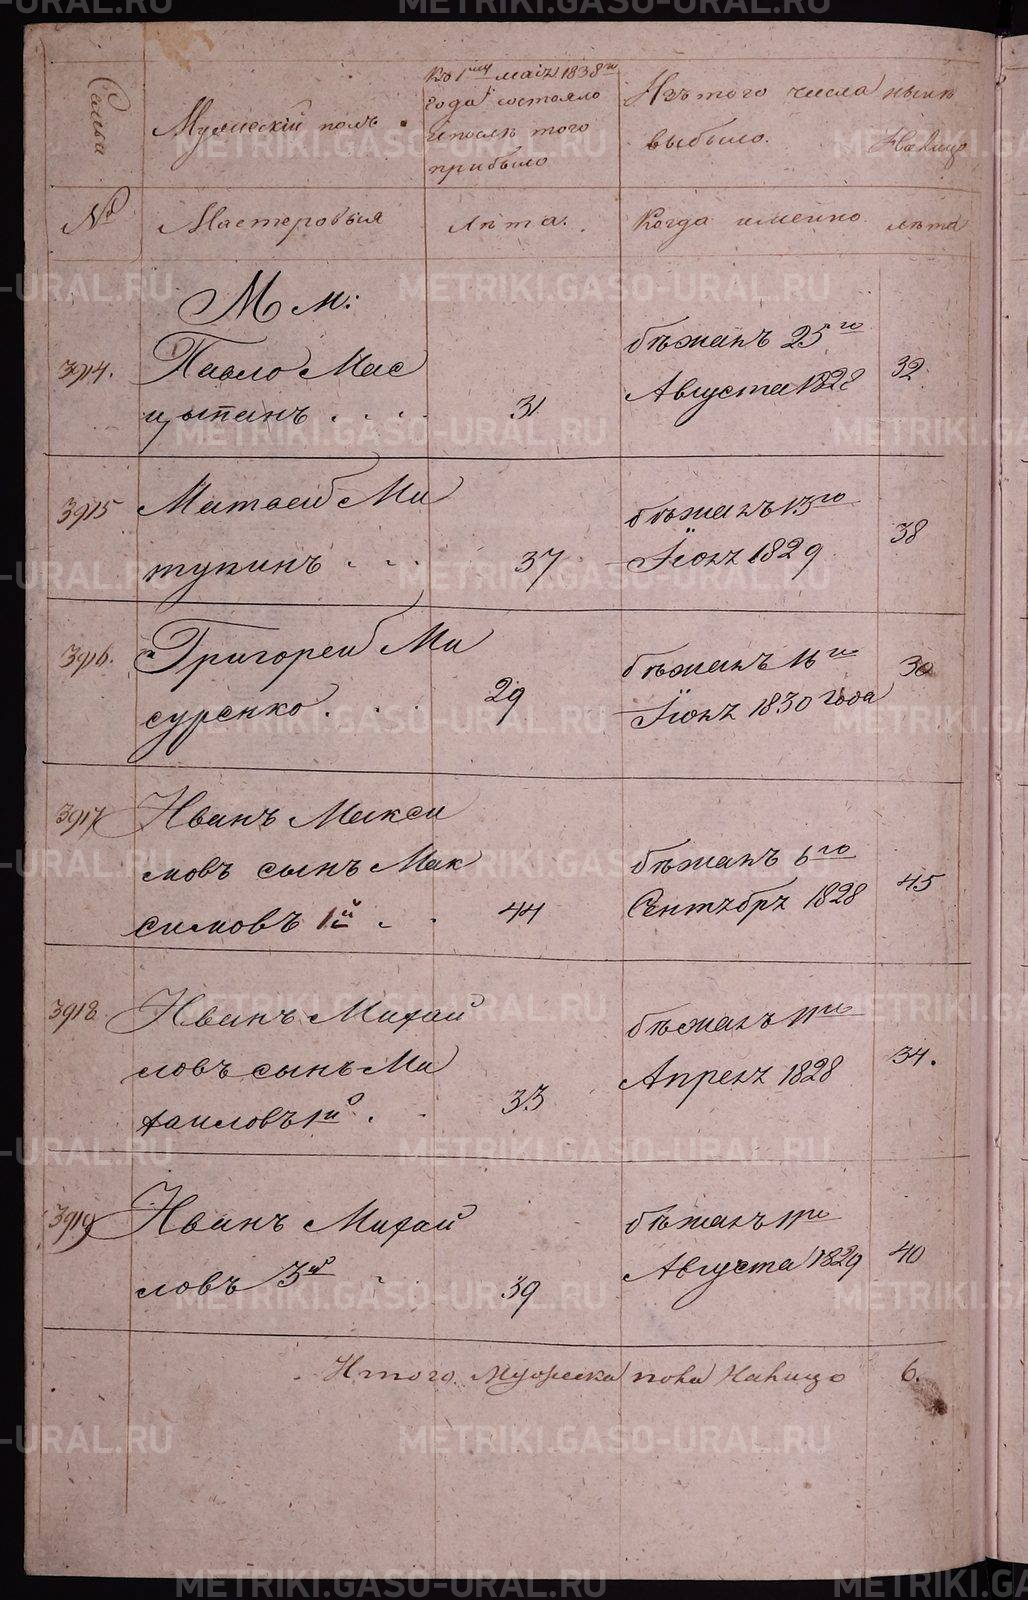 Семьи
Мужескій полъ.
Къ 1му маія 1838го
года состояло
и послѣ того
прибыло
Изъ того числа
выбыло.
нынѣ
На лицо
№
Мастеровыя
Лѣта.
Когда именно.
лѣта
М м:
3914.
Павло Мас
цыпанъ . . . .
31
бѣжалъ 25го
Августа 1828
32.
3915
Матвей Ми
тупинъ . . .
37
бѣжалъ 13го
Іюля 1829
38
3916.
Григорей Ми
суренко . . .
29
бѣжалъ 16го
Іюля 1830 года
30
3917
Иванъ Макси
мовъ сынъ Мак
симовъ 1й . .
44
бѣжалъ 6го
Сентября 1828
45
3918
Иванъ Михай
ловъ сынъ Ми
хаиловъ 1й . .
33
бѣжалъ 11го
Апреля 1828
34.
3919
Иванъ Михай
ловъ 3й . .
39
бѣжалъ 11го
Августа 1829
40
Итого Мужеска пола На лицо
6.
METRIKI.GASO-URAL.RU